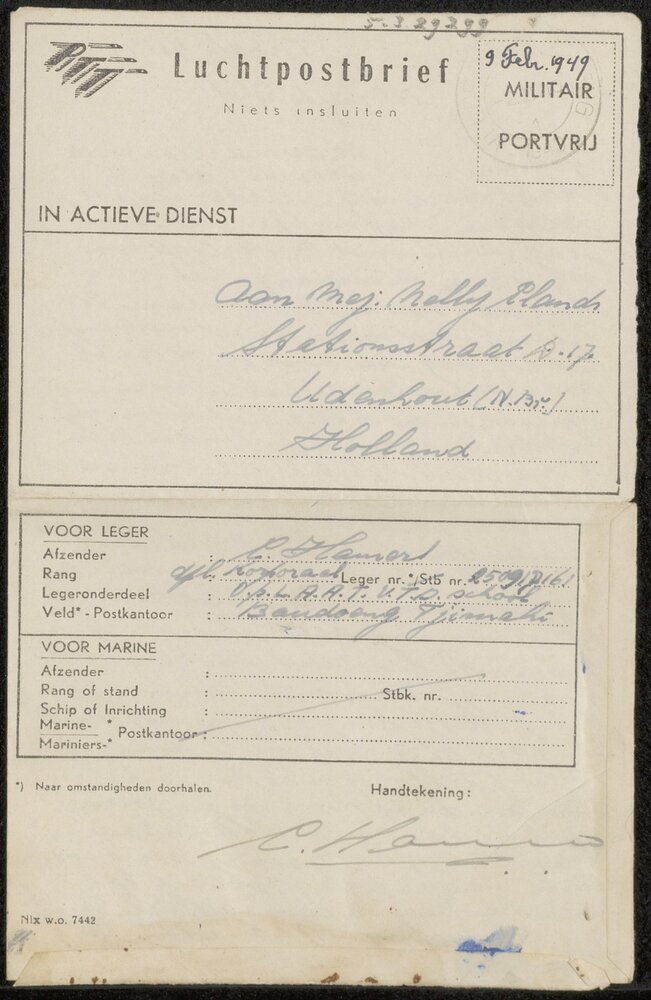 5.3 29299
PTT
Luchtpostbrief
Niets insluiten
9 Febr. 1949
MILITAIR
PORTVRIJ
IN ACTIEVE DIENST
Aan Mej: Nelly Elands
Stationsstraat D.17.
Udenhout (N.Br.)
Holland
VOOR LEGER
Afzender : C. Hamers
Rang : dpl. Korporaal Leger nr.*/Stb nr.
Legeronderdeel : O.p.L.A.A.T. V.T.D. school
Veld* - Postkantoor : Bandoeng Tjimahi
VOOR MARINE
Afzender :
Rang of stand : Stbk. nr.
Schip of Inrichting :
Marine- *
Mariniers-* Postkantoor :
*) Naar omstandigheden doorhalen.
Handtekening:
C. Hamers
NIx w.o. 7442